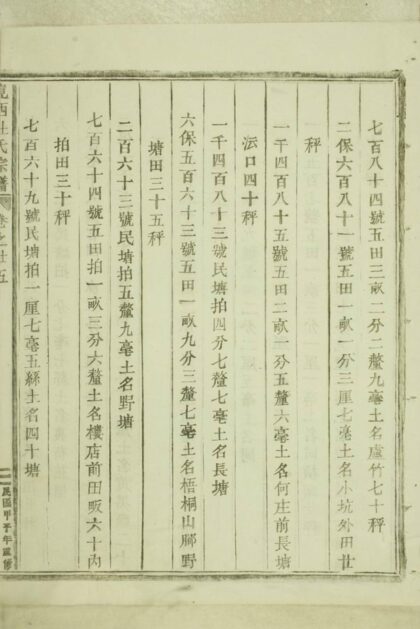 七百八十四號五田三畝二分二釐九毫土名蘆竹七十秤
二保六百八十一號五田一畝一分三厘七毫土名小坑外田廿
秤
一千四百八十五號五田二畝一分五釐六毫土名何庄前長塘
沄口四十秤
一千四百八十三號民塘拍四分七釐七毫土名長塘
六保五百六十三號五田一畝九分三釐七毫土名梧桐山腳野
塘田三十五秤
二百六十三號民塘拍五釐九毫土名野塘
七百六十四號五田拍一畝三分六釐土名樓店前田畈六十內
拍田三十秤
七百六十九號民塘拍一厘七毫五絲土名四十塘
西杜氏宗譜 卷之廿五
民國甲子年重修